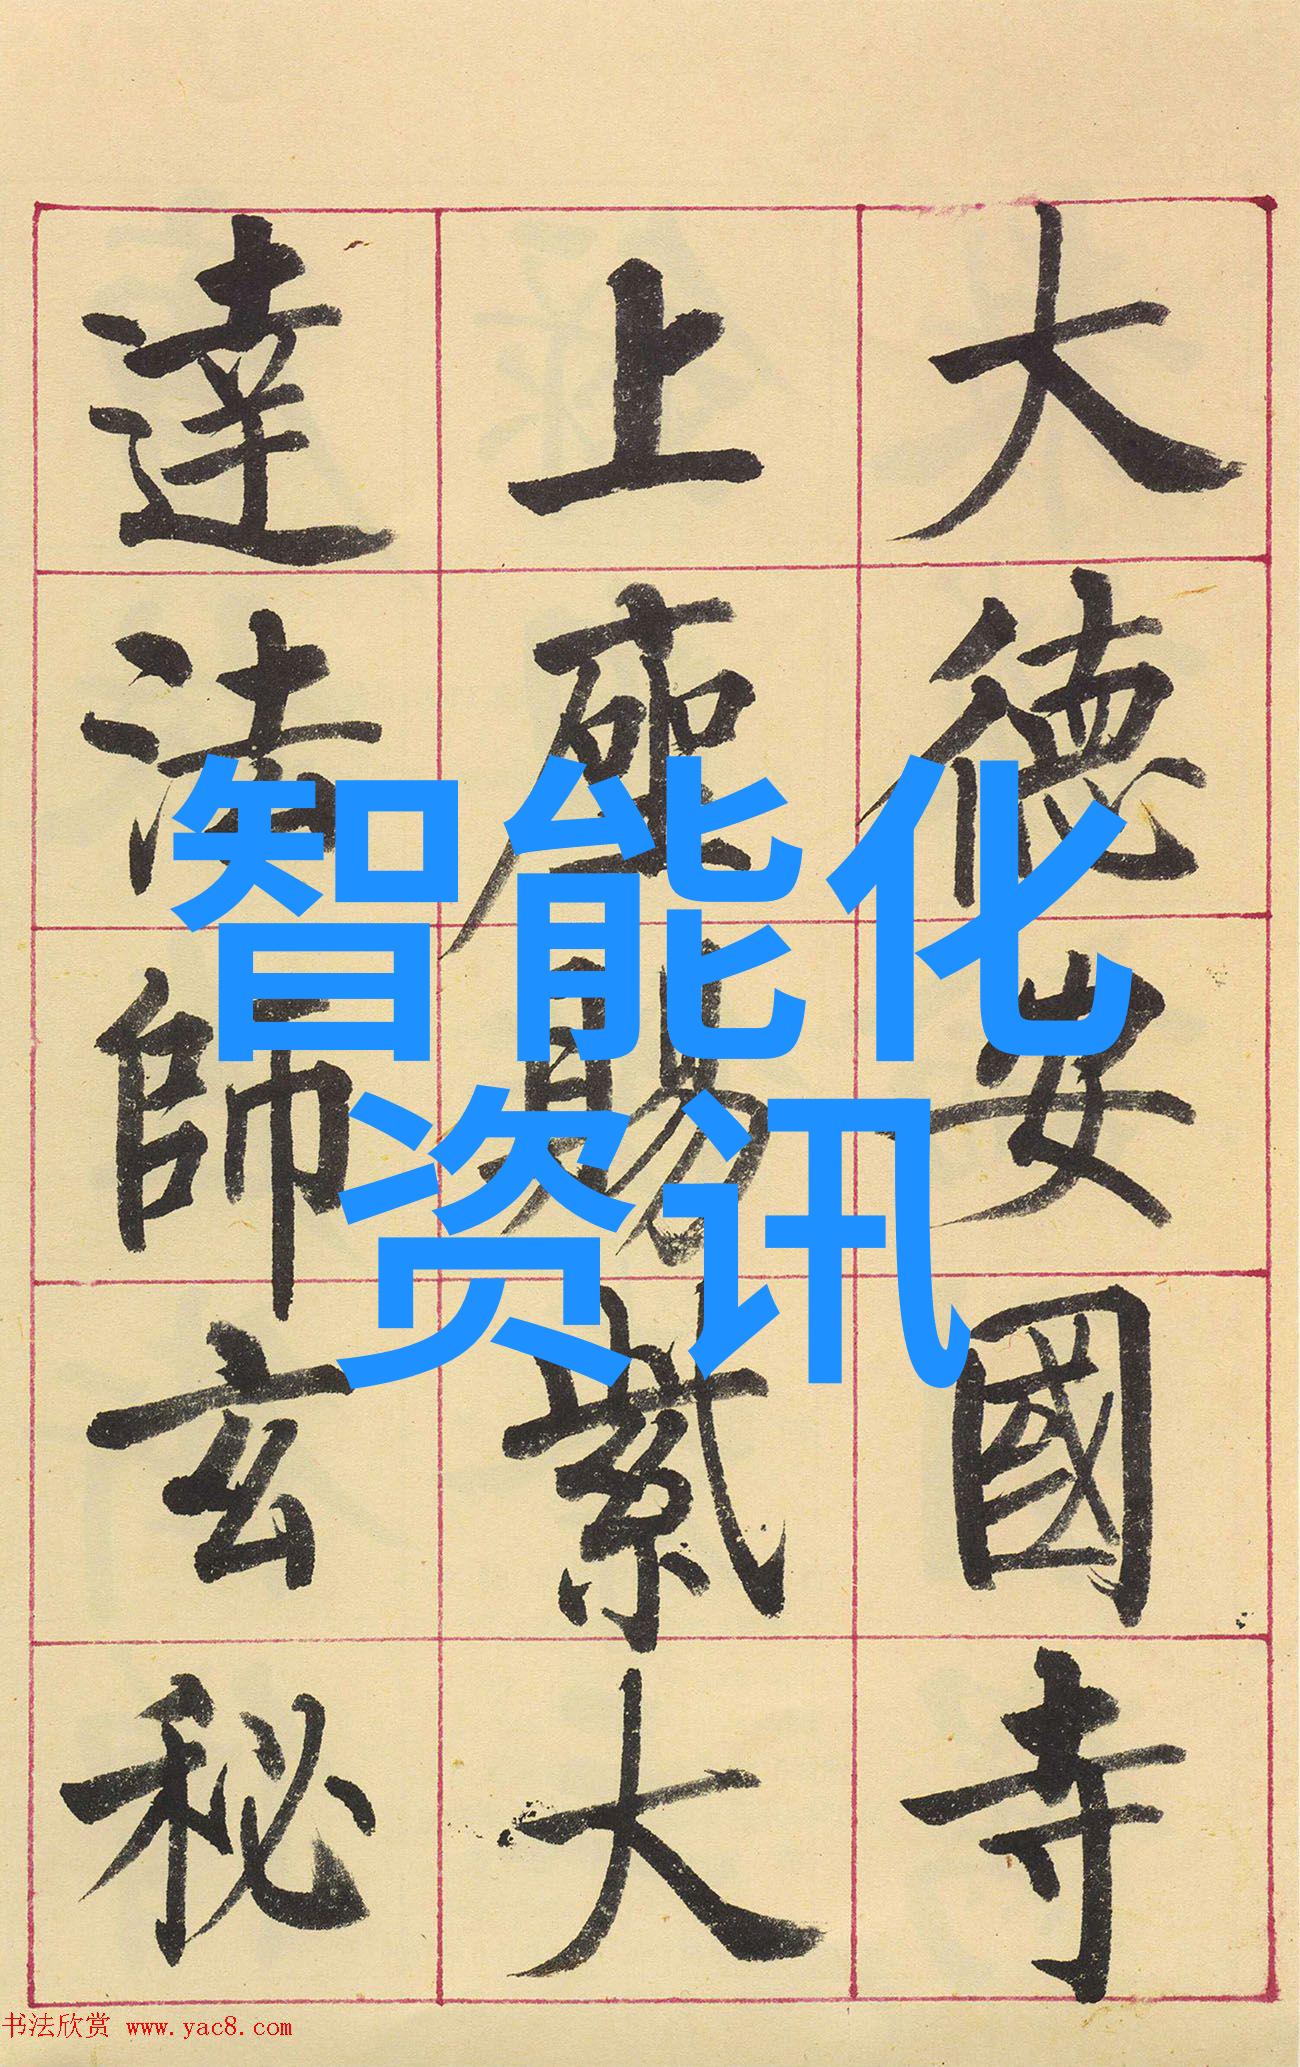 大德安國寺
上座賜紫大
達法師玄秘
智能化
资讯
书法欣赏 www.yac8.com